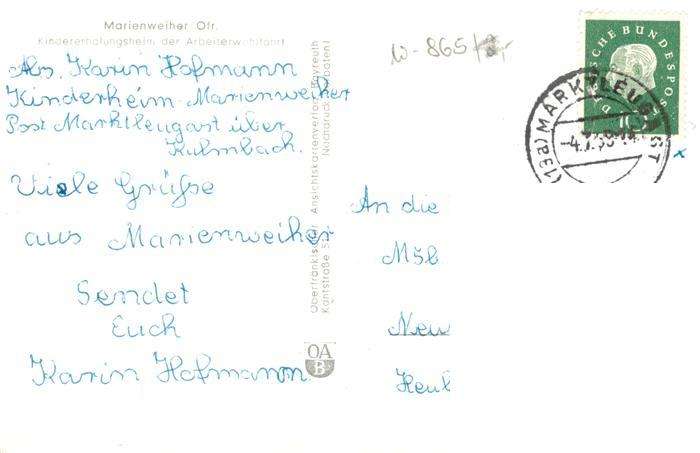 Marienweiher Ofr.
Kindererholungsheim der Arbeiterwohlfahrt
W-865
Abs. Karin Hofmann
Kinderheim Marienweiher
Post Marktleugast über
Kulmbach.
Viele Grüße
aus Marienweiher
Sendet
Euch
Karin Hofmann.
Oberfränkischer Ansichtskartenverlag Bayreuth
Kantstraße
Nachdruck verboten!
OA
B
DEUTSCHE BUNDESPOST
10
(13B) MARKTLEUGAST
An die
Neu